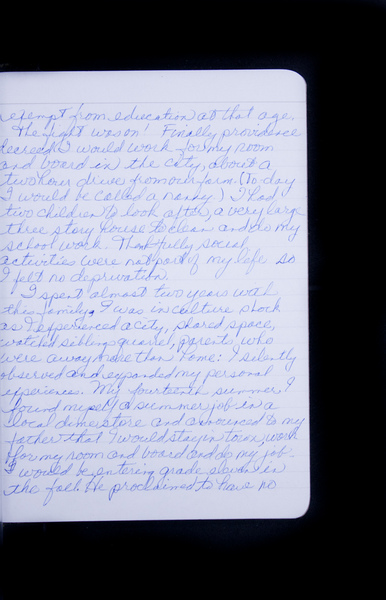 exempt from education at that age.
The fight was on! Finally providence
decreed I would work for my room
and board in the city, about a
two hour drive from our farm. (To-day
I would be called a nanny.) I had
two children to look after, a very large
three story house to clean and do my
school work. Thankfully social
activities were not part of my life so
I felt no deprivation.
I spent almost two years with
this family. I was in culture shock
as I experienced a city, shared space,
watched siblings quarrel, parents who
were away more than home: I silently
observed and expanded my personal
experiences. My fourteenth summer I
found myself a summer job in a
local dime store and announced to my
father that I would stay in town, work
for my room and board and do my job.
I would be entering grade eleven in
the fall. He proclaimed to have no